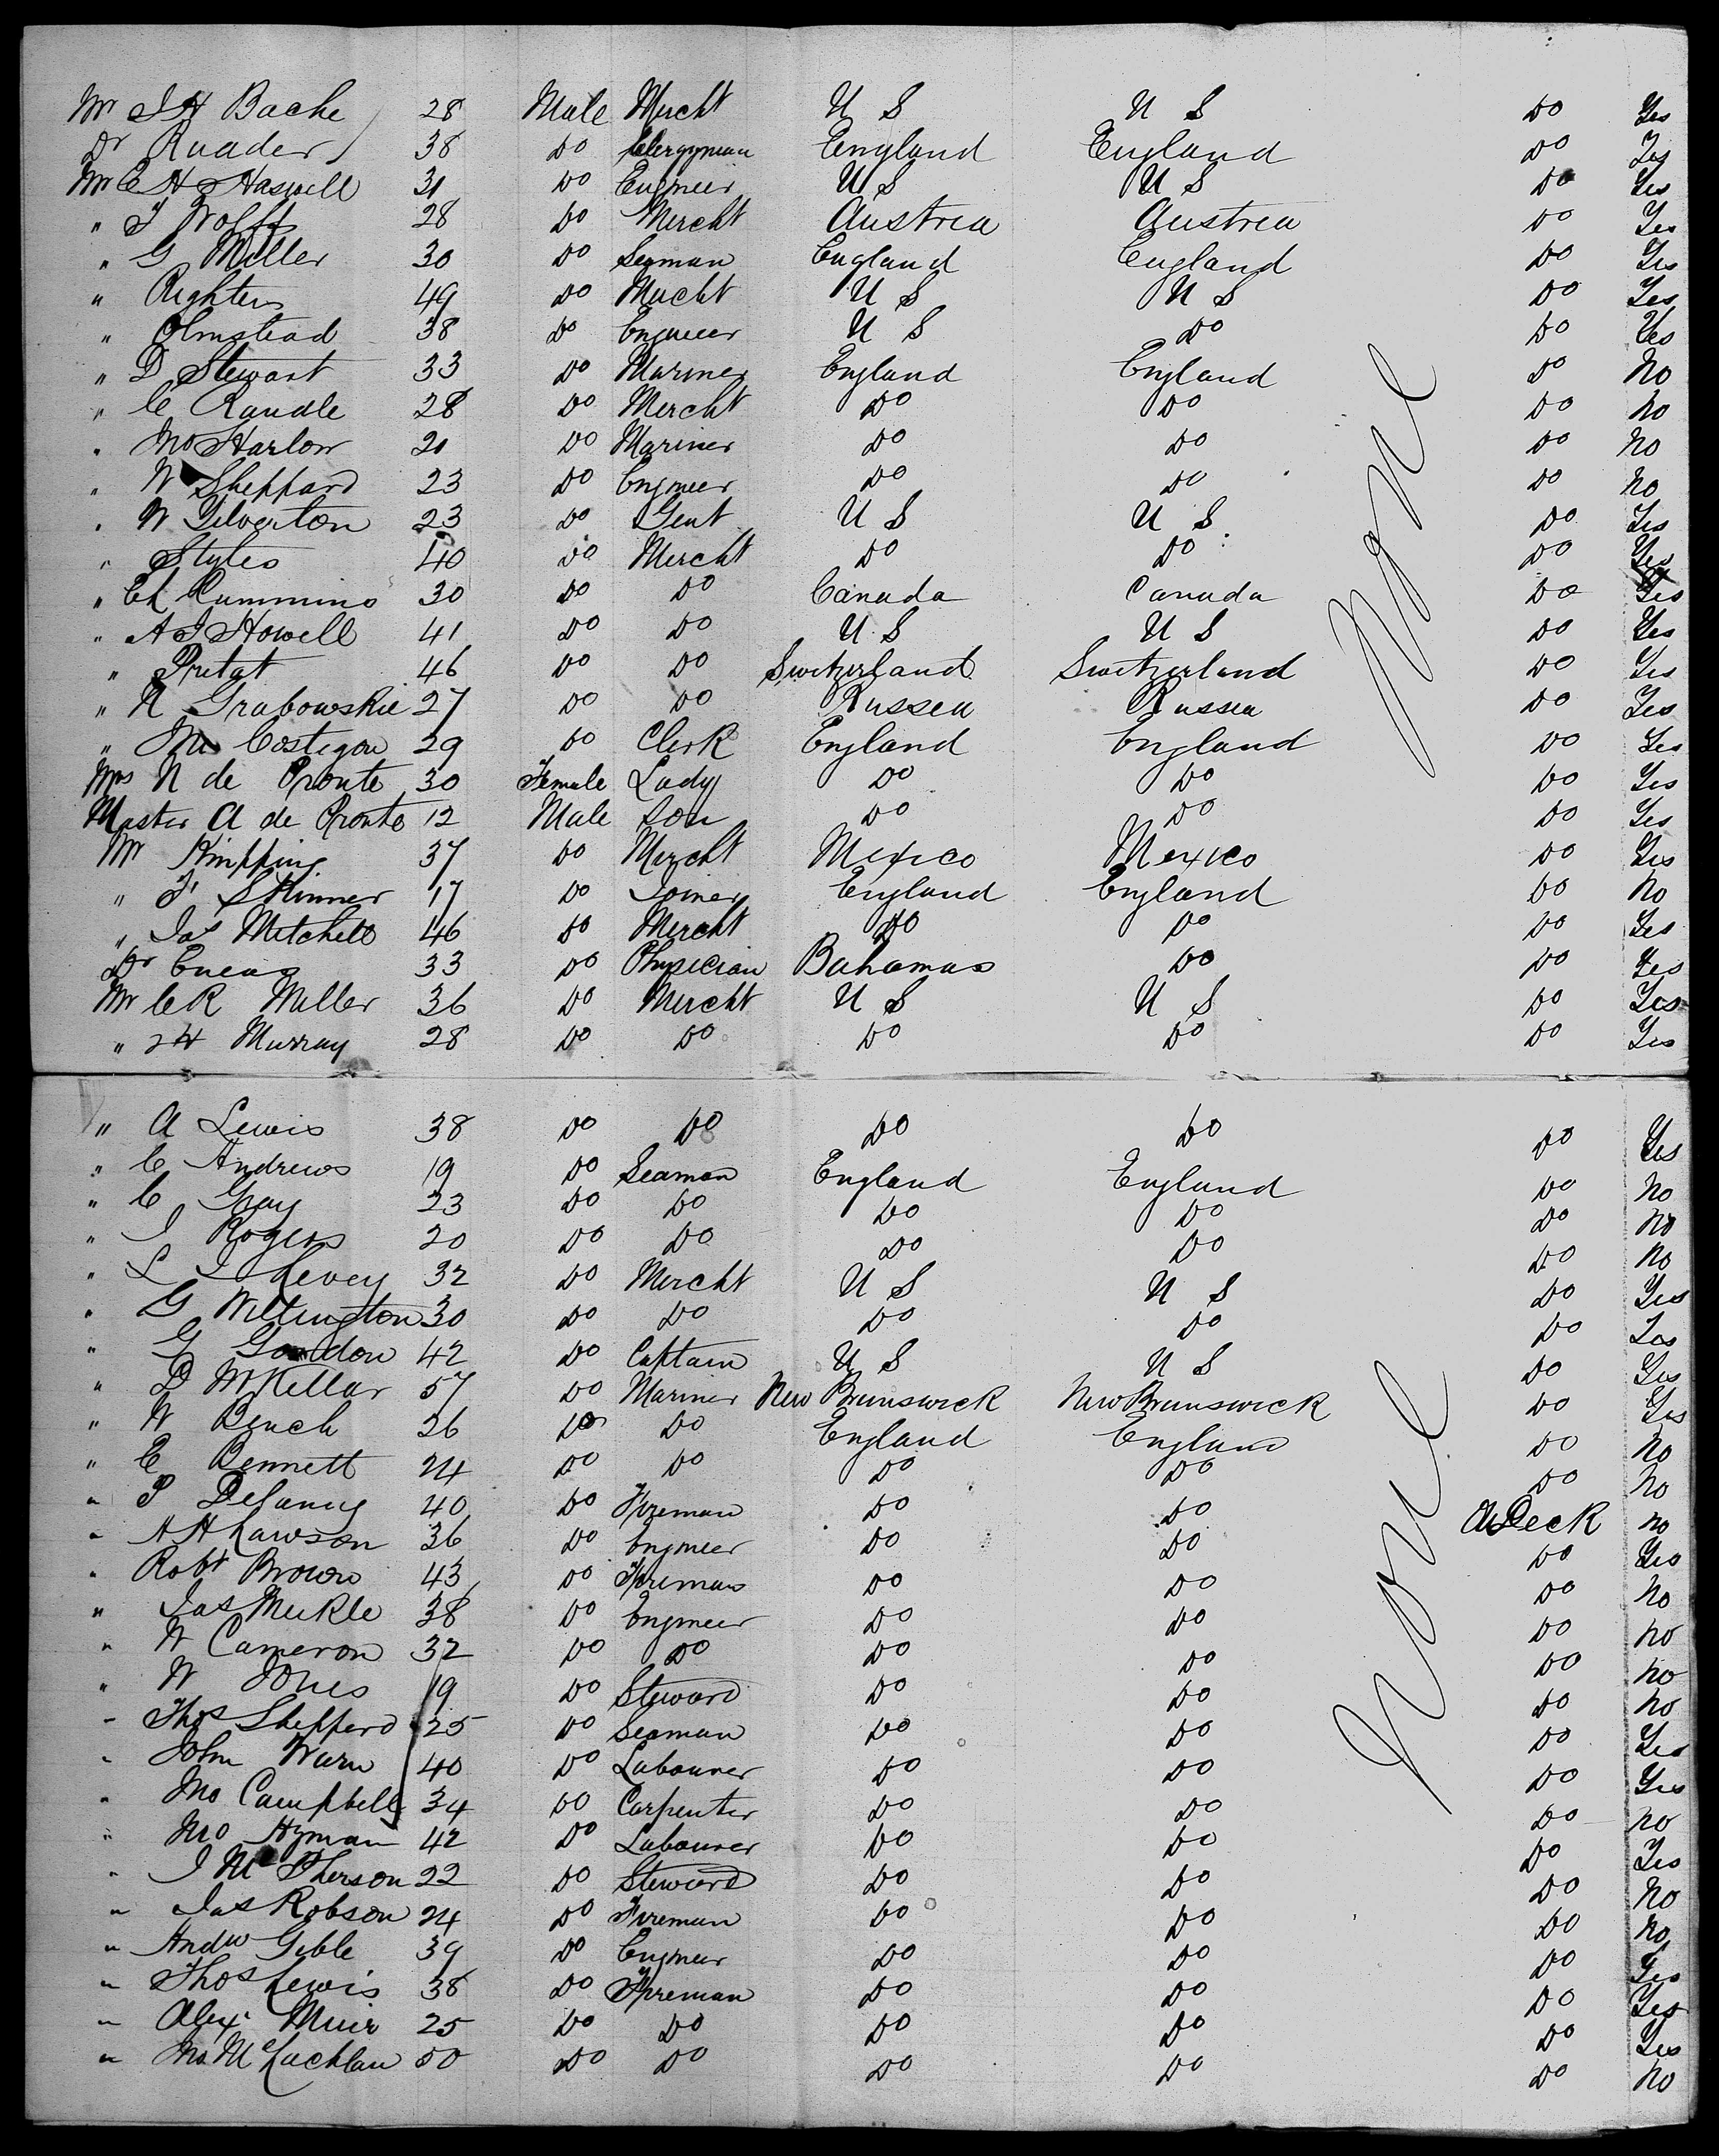 Mr J H Bache 28 Male Mercht U S U S Do Yes
Dr Ruader 38 Do Clergyman England England Do Yes
Mr C H Haswell 31 Do Engineer U S U S Do Yes
" J Wolff 28 Do Mercht Austrea Austrea Do Yes
" G Miller 30 Do Seaman England England Do Yes
" Righter 49 Do Mercht U S U S Do Yes
" Olmstead 38 Do Engineer U S Do Do Yes
" D Stewart 33 Do Mariner England England Do No
" C Randle 28 Do Mercht Do Do Do No
" Jno Harlow 20 Do Mariner Do Do Do No
" W Sheppard 23 Do Engineer Do Do Do No
" W Yelverton 23 Do Gent U S U S Do Yes
" Styles 40 Do Mercht Do Do Do Yes
" Ed Cummins 30 Do Do Canada Canada Do Yes
" A J Howell 41 Do Do U S U S Do Yes
" Pretat 46 Do Do Switzerland Switzerland Do Yes
" N Grabowskie 27 Do Do Russea Russea Do Yes
" Costigan 29 Do Clerk England England Do Yes
Mrs N de Pronte 30 Female Lady Do Do Do Yes
Master A de Pronte 12 Male Son Do Do Do Yes
Mr Kimpping 37 Do Mercht Mexico Mexico Do Yes
" F Skinner 17 Do Joiner England England Do No
" Jas Mitchell 46 Do Mercht Do Do Do Yes
Dr Eneas 33 Do Physician Bahamas Do Do Yes
Mr C R Miller 36 Do Mercht U S U S Do Yes
" Murray 28 Do Do Do Do Do Yes
None
" A Lewis 38 Do Do Do Do Do Yes
" C Andrews 19 Do Seaman England England Do No
" C Gray 23 Do Do Do Do Do No
" J Rogers 20 Do Do Do Do Do No
" L J Levey 32 Do Mercht U S U S Do Yes
" G Wiltington 30 Do Do Do Do Do Yes
" G Gordon 42 Do Captain U S U S Do Yes
" D McKellar 57 Do Mariner New Brunswick New Brunswick Do Yes
" W Bench 26 Do Do England England Do No
" C Bennett 24 Do Do Do Do Do No
" P Delanny 40 Do Fireman Do Do Deck no
" A H Lawson 36 Do Engineer Do Do Do Yes
" Robt Brown 43 Do Fireman Do Do Do No
" Jas Meikle 38 Do Engineer Do Do Do No
" W Cameron 32 Do Do Do Do Do No
" W Jones 19 Do Steward Do Do Do No
" Thos Sheppard 25 Do Seaman Do Do Do Yes
" John Warn 40 Do Labourer Do Do Do Yes
" Jno Campbell 34 Do Carpenter Do Do Do No
" Jno Hyman 42 Do Labourer Do Do Do Yes
" J McPherson 22 Do Steward Do Do Do No
" Jas Robson 24 Do Fireman Do Do Do No
" Andw Geble 39 Do Engineer Do Do Do Yes
" Thos Lewis 38 Do Fireman Do Do Do Yes
" Alex Muir 25 Do Do Do Do Do Yes
" Jno McLachlan 50 Do Do Do Do Do No
None